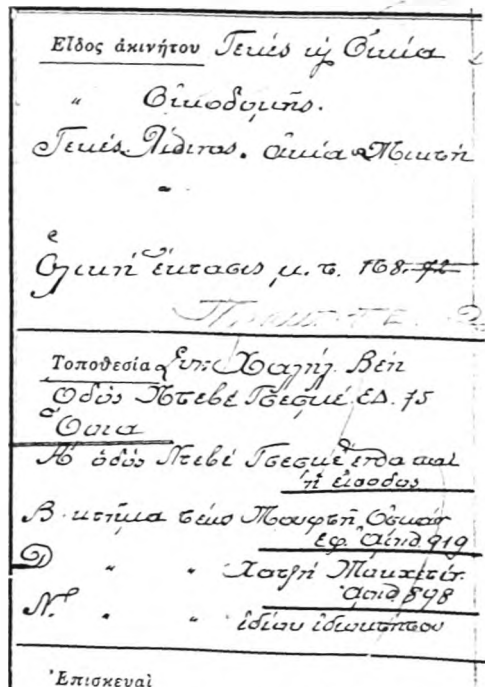 Εἶδος ἀκινήτου Τεκές κ Οἰκία
" Οἰκοδομῆς.
Τεκές Λίθινος. Οἰκία Μικτή
"
Ὁλική ἔκτασις μ. τ. 168.72
Τοποθεσία Συν: Χαλήλ Βέη
Ὁδός Ντεβέ Τσεσμέ ΕΔ. 75
Ὅρια
Α ὁδός Ντεβέ Τσεσμέ ἔνθα καί
ἡ εἴσοδος
Β κτῆμα τέως Μουφτῆ
ἐφ. ἀριθ. 919
Δ " " Χατζῆ
ἀριθ. 898
Ν. " " ἰδίου ἰδιοκτήτου
Ἐπισκευαὶ